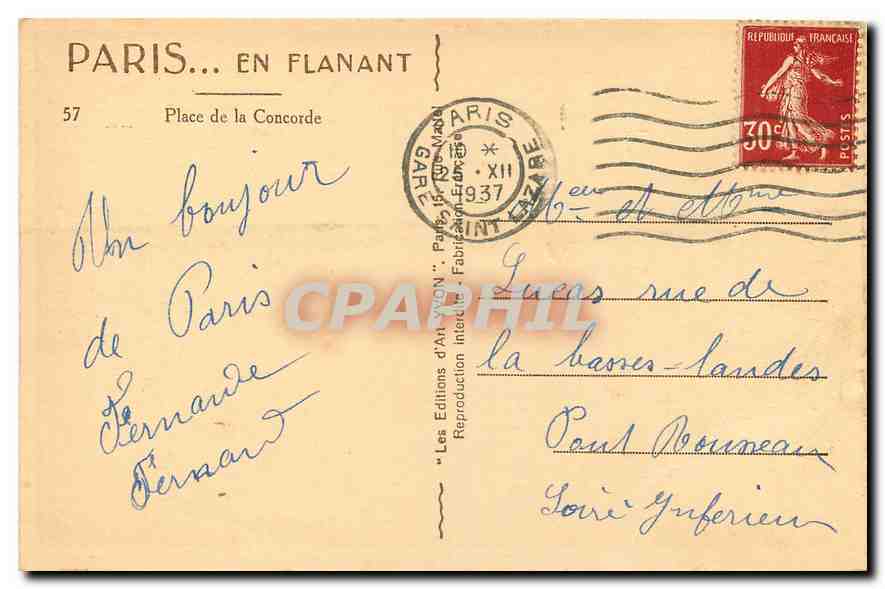 PARIS... EN FLANANT
57 Place de la Concorde
Un bonjour
de Paris
Fernande
Fernand
"Les Editions d'Art YVON". Paris, 15, Rue Martel
Reproduction interdite. Fabrication Française
PARIS
GARE SAINT LAZARE
10 *
XII
1937
REPUBLIQUE FRANÇAISE
30c
POSTES
et Mme
Lucas rue de
la basses-landes
Pont Rousseau
Loire Inferieu
CPAPHIL